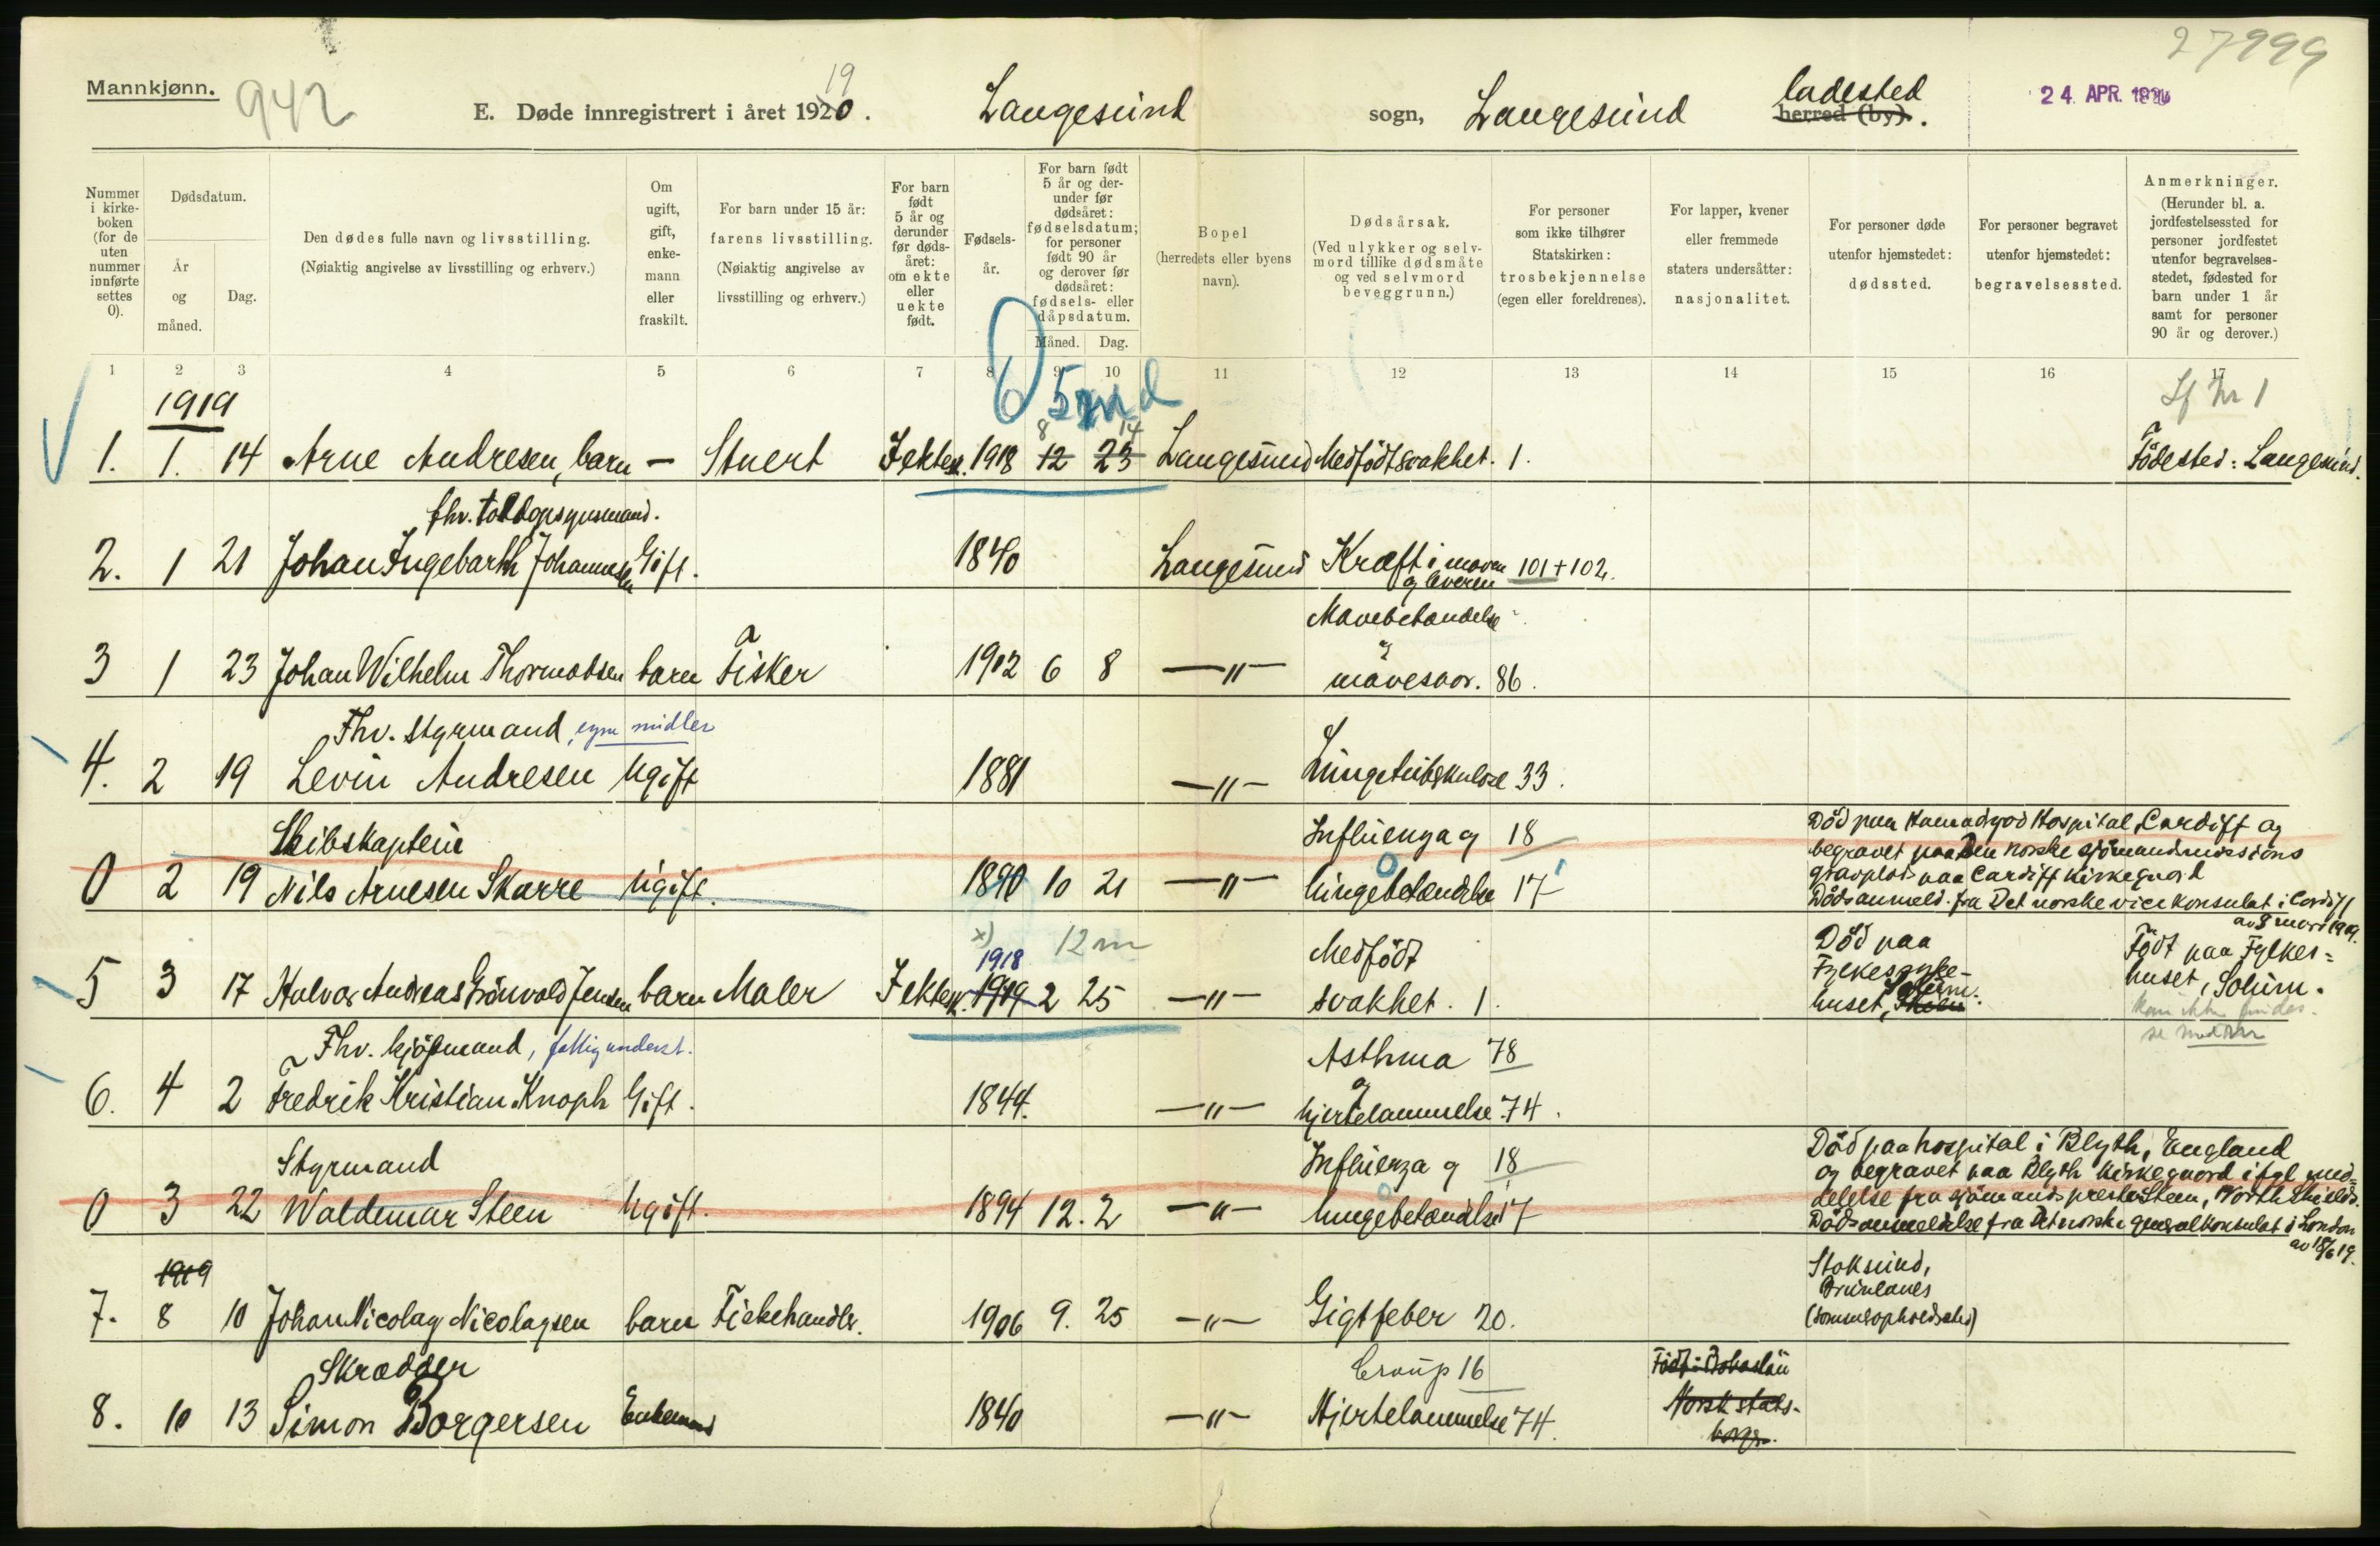 27999
Mannkjønn.
942
E. Døde innregistrert i året 1920.
19
Langesund sogn, Langesund ladested herred (by).
24. APR. 1920
Nummer i kirkeboken (for de uten nummer innførte settes 0).
Dødsdatum.
År og måned.
Dag.
Den dødes fulle navn og livsstilling.
(Nøiaktig angivelse av livsstilling og erhverv.)
Om ugift, gift, enkemann eller fraskilt.
For barn under 15 år: farens livsstilling.
(Nøiaktig angivelse av livsstilling og erhverv.)
For barn født 5 år og derunder før dødsåret: om ekte eller uekte født.
Fødselsår.
For barn født 5 år og derunder før dødsåret: fødselsdatum; for personer født 90 år og derover før dødsåret: fødsels- eller dåpsdatum.
Måned. Dag.
Bopel
(herredets eller byens navn).
Dødsårsak.
(Ved ulykker og selvmord tillike dødsmåte og ved selvmord beveggrunn.)
For personer som ikke tilhører Statskirken: trosbekjennelse (egen eller foreldrenes).
For lapper, kvener eller fremmede staters undersåtter: nasjonalitet.
For personer døde utenfor hjemstedet: dødssted.
For personer begravet utenfor hjemstedet: begravelsessted.
Anmerkninger.
(Herunder bl. a. jordfestelsessted for personer jordfestet utenfor begravelsesstedet, fødested for barn under 1 år samt for personer 90 år og derover.)
1 2 3 4 5 6 7 8 9 10 11 12 13 14 15 16 17
1919
5 md
8 14
1. 1. 14 Arne Andresen, barn — Stuert Iektesk. 1918 12 23 Langesund Medfödt svakhet. 1. Födested: Langesund.
fhv. toldopsynsmand.
2. 1 21 Johan Ingebarth Johannesen Gift. 1840 Langesund Kræft i maven og leveren 101+102.
Mavebetændelse
3 1 23 Johan Wilhelm Thormodsen barn Fisker 1902 6 8 —"— og mavesaar. 86.
Fhv. styrmand, egne midler
4. 2 19 Levin Andresen Ugift 1881 —"— Lungetuberkulose 33.
Skibskaptein
0 2 19 Nils Arnesen Skarre Ugift. 1890 10 21 —"— Influenza og 18
lungebetændelse 17
Död paa Hospital, Cardiff og
begravet paa Den norske sjömandsmissions
gravplads paa Cardiff kirkegaard
Dödsanmeld. fra Det norske vicekonsulat i Cardiff
av 8 mars 1919.
x) 1918 12 m
5 3 17 Halvor Andreas Grönvold Jensen barn Maler Iektesk. 1919 2 25 —"— Medfödt
svakhet. 1.
Död paa
Fylkessyke-
huset, Skien Solum.
Födt paa Fylkes=
huset, Solum.
kan ikke findes.
se nedenn
Fhv. kjöpmand, fattigunderst.
6. 4 2 Fredrik Kristian Knoph Gift. 1844. —"— Asthma 78
og
hjertelammelse 74.
Styrmand
0 3 22 Waldemar Steen Ugift. 1894 12. 2 —"— Influenza og 18
lungebetændelse 17
Död paa hospital i Blyth, England
og begravet paa Blyth kirkegaard ifgl. med=
delelse fra sjömandsprest Steen, North Shields.
Dödsanmeldelse fra Det norske generalkonsulat i London
av 18/6 19.
1919
7. 8 10 Johan Nicolay Nicolaysen barn Fiskehandler. 1906 9. 25 —"— Gigtfeber 20.
Stoksund,
Brunlanes
(sommeropholdssted)
Skrædder
8. 10 13 Simon Borgersen Enkemand 1840 —"— Croup 16
Hjertelammelse 74.
Födt: Bohuslän
Norsk stats-
borger.